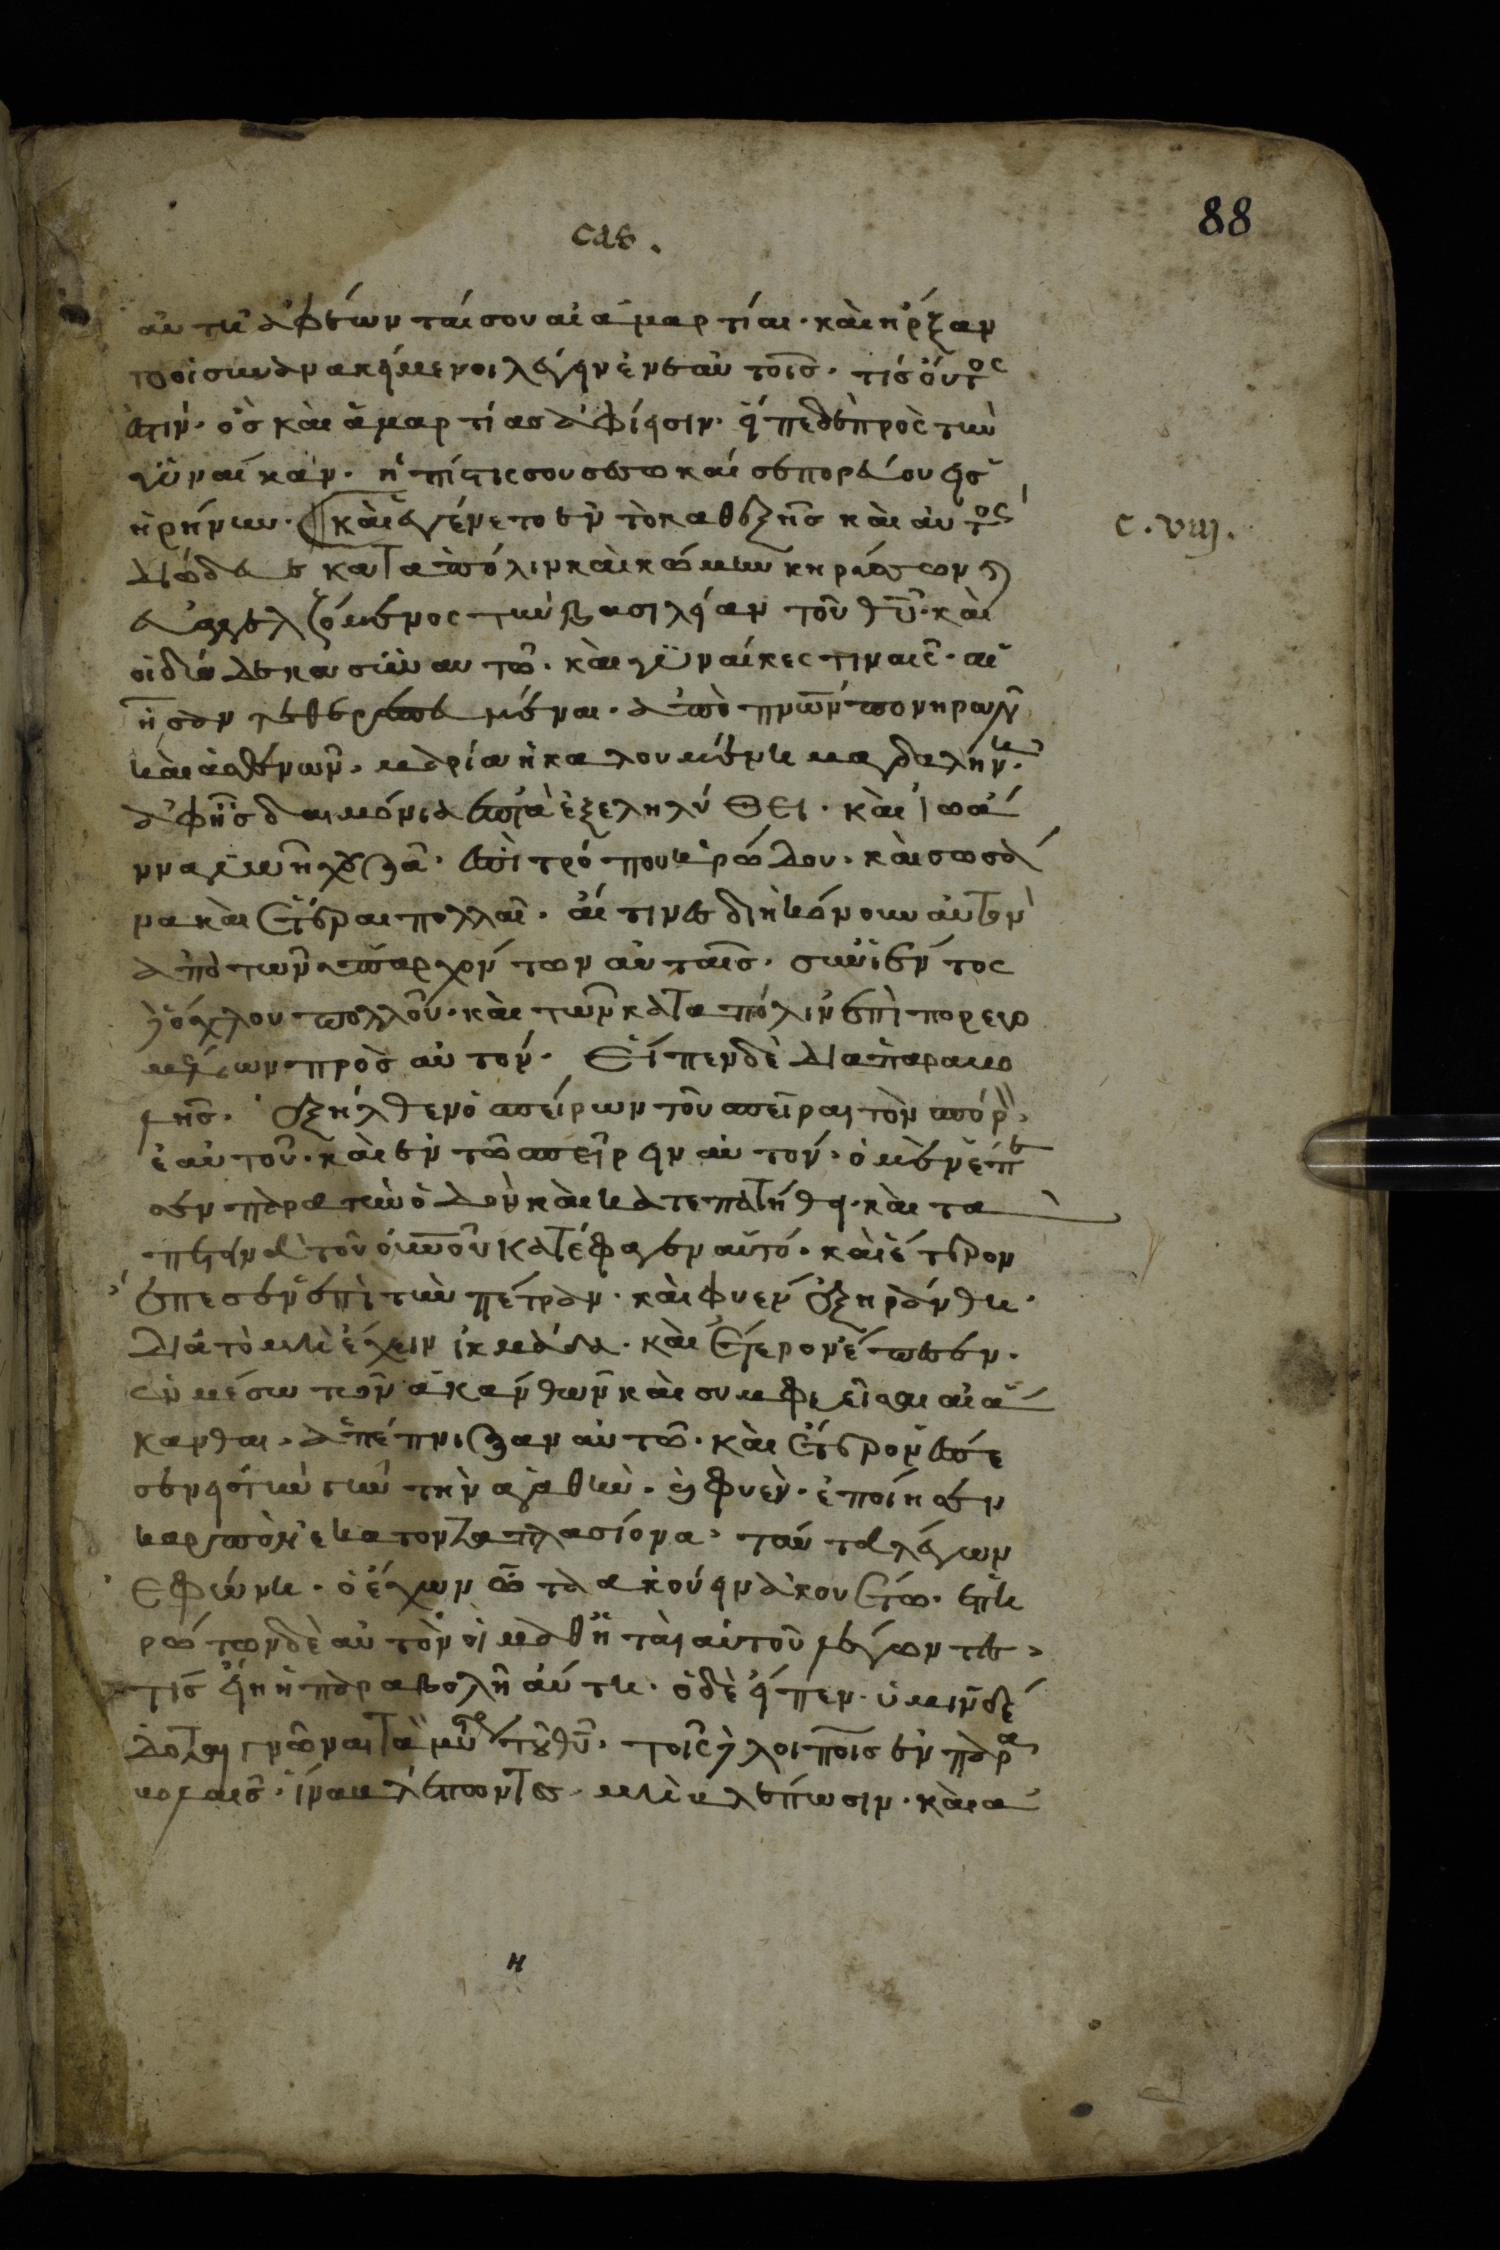 88
cas.
αὐτῇ ἀφέωνταί σου αἱ ἁμαρτίαι· καὶ ἤρξαν
το οἱ συνανακείμενοι λέγειν ἐν ἑαυτοῖς· τίς οὗτος
ἐστιν· ὃς καὶ ἁμαρτίας ἀφίησιν· εἶπε δὲ πρὸς τὴν
γυναῖκαν· ἡ πίστις σου σέσωκαί σε πορεύου εἰς
ἠρήνην· καὶ ἐγένετο ἐν τὸ καθεξῆς καὶ αὐτὸς
C. viij.
διώδευε κατα πόλιν καὶ κώμην κηρύσσων καὶ
εὐαγγελιζόμενος τὴν βασιλείαν τοῦ θυ· καὶ
οἱ δώδεκα σὺν αυτῶ· καὶ γυναίκες τιναις· αἳ
ἦσαν τεθεραπευμέναι· ἀπὸ πνων πονηρων
καὶ ἀσθενων· μαρία ἡ καλουμένη μαγδαληνὴ·
ἀφ ἧς δαιμόνια ἑπτὰ ἐξεληλύθει· καὶ ἰωά
ννα γυνὴ χουζα· ἐπιτρόπου ηρώδου· καὶ σωσά
να καὶ ἕτεραι πολλαὶ· αἵτινες διηκόνουν αὐτον
ἀπὸ των ὑπαρχόντων αὐταῖς· συνϊέντος
δὲ ὄχλου πολλοῦ· καὶ τῶν κατα πόλιν ἐπὶπορευο
μένων πρὸς αὐτόν· Εἶπεν δὲ διαπαραβο
λῆς· ἐξῆλθεν ὁ σπείρων τοῦ σπεῖραι τὸν σπόρον
ἑαυτοῦ· καὶ ἐν τῶ σπεῖρειν αὐτόν· ὁ μὲν ἔπε
σεν παρα τὴν ὁδὸν καὶ κατεπατήθη· καὶ τα
πετεινὰ τοῦ οὐνοῦ κατέφαγεν αὐτό· καὶ ἕτερον
ἔπεσεν ἐπὶ τὴν πέτραν· καὶ φυεν ἐξηράνθη·
διὰ τὸ μὴ ἔχειν ἰκμάδα· καὶ ἕτερον ἔπεσεν·
ἐν μέσω τῶν ἀκανθῶν καὶ συμφυεῖσαι αἱ ἄ
κανθαι· ἀπέπνιξαν αὐτῶ· καὶ ἕτερον ἔπε
σεν εἰς τὴν γῆν τὴν αγαθὴν· καὶ φυὲν· ἐποίησεν
καρπὸν ἑκατονταπλασίονα· ταύτα λέγων
Ἐφώνη· ὁ ἔχων ὦτα ἀκούειν ἀκουέτω· ἐπη
ρώτων δὲ αὐτὸν οἱ μαθηταὶ αὐτοῦ λέγοντες·
τίς εἴη ἡ παραβολὴ αὕτη· ὁ δὲ εἶπεν· ὑμῖν δέ
δοται γνῶναι τὰ μυ τοῦ θυ· τοῖς δὲ λοιποῖς ἐν παρα
βολαῖς· ἵνα βλέποντες· μὴ βλέπωσιν· καὶ α
η